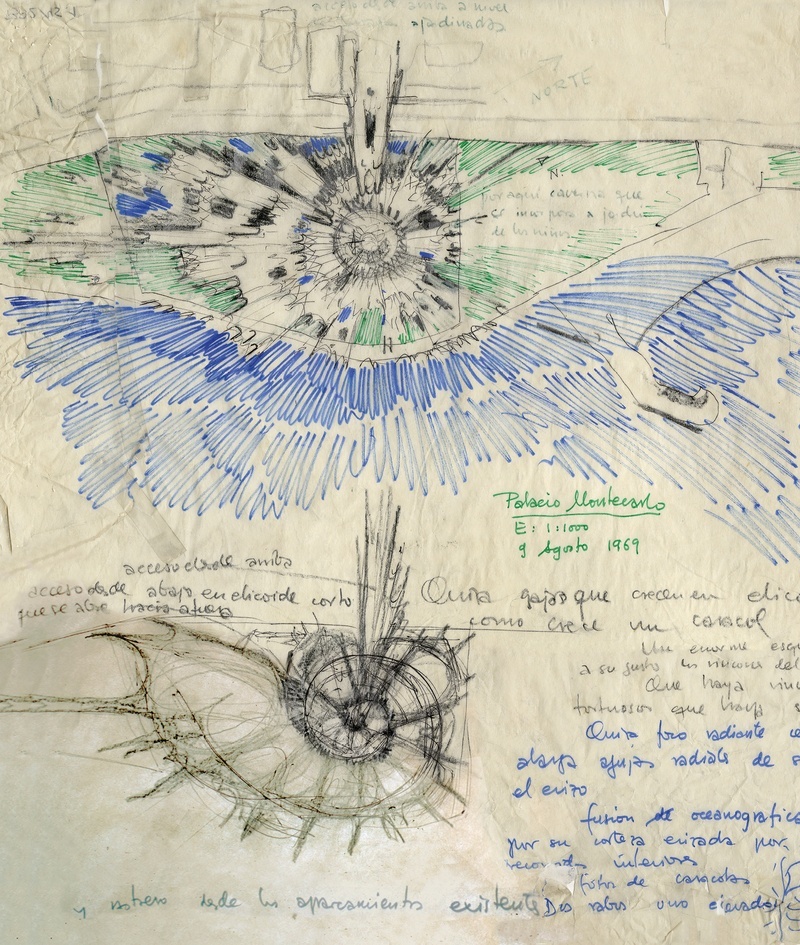 acceso desde arriba a nivel
ajardinadas
NORTE
N.
por aquí caverna que
se incorpora a jardin
de los niños
Palacio Montecarlo
E: 1:1000
9 Agosto 1969
acceso desde arriba
acceso desde abajo en elicoide corto
que se abre hacia afuera
Quizá gajos que crecen en elico
como crece un caracol
Un enorme esq
a su gusto los rincones del
Que haya rinc
tortuosos que haya s
Quizá foro radiante ce
abaja agujas radiales de s
el erizo
fusión de oceanografico
por su corteza erizada por
interiores
fotos de caracolas
y rastrero desde los aparcamientos existente Dos rabos uno elevado